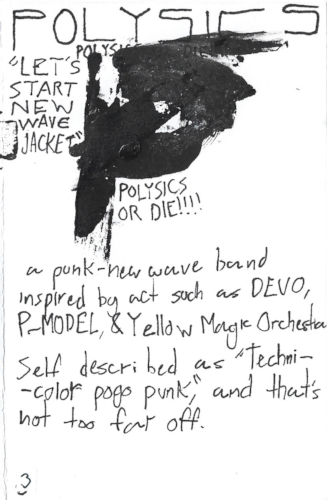 POLYSICS
POLYSICS OR DIE
"LET'S
START
NEW
WAVE
JACKET"
POLYSICS
OR DIE!!!!
a punk-new wave band
inspired by act such as DEVO,
P-MODEL, & Yellow Magic Orchestra
Self described as "Techni-
-color pogo punk," and that's
not too far off.
3